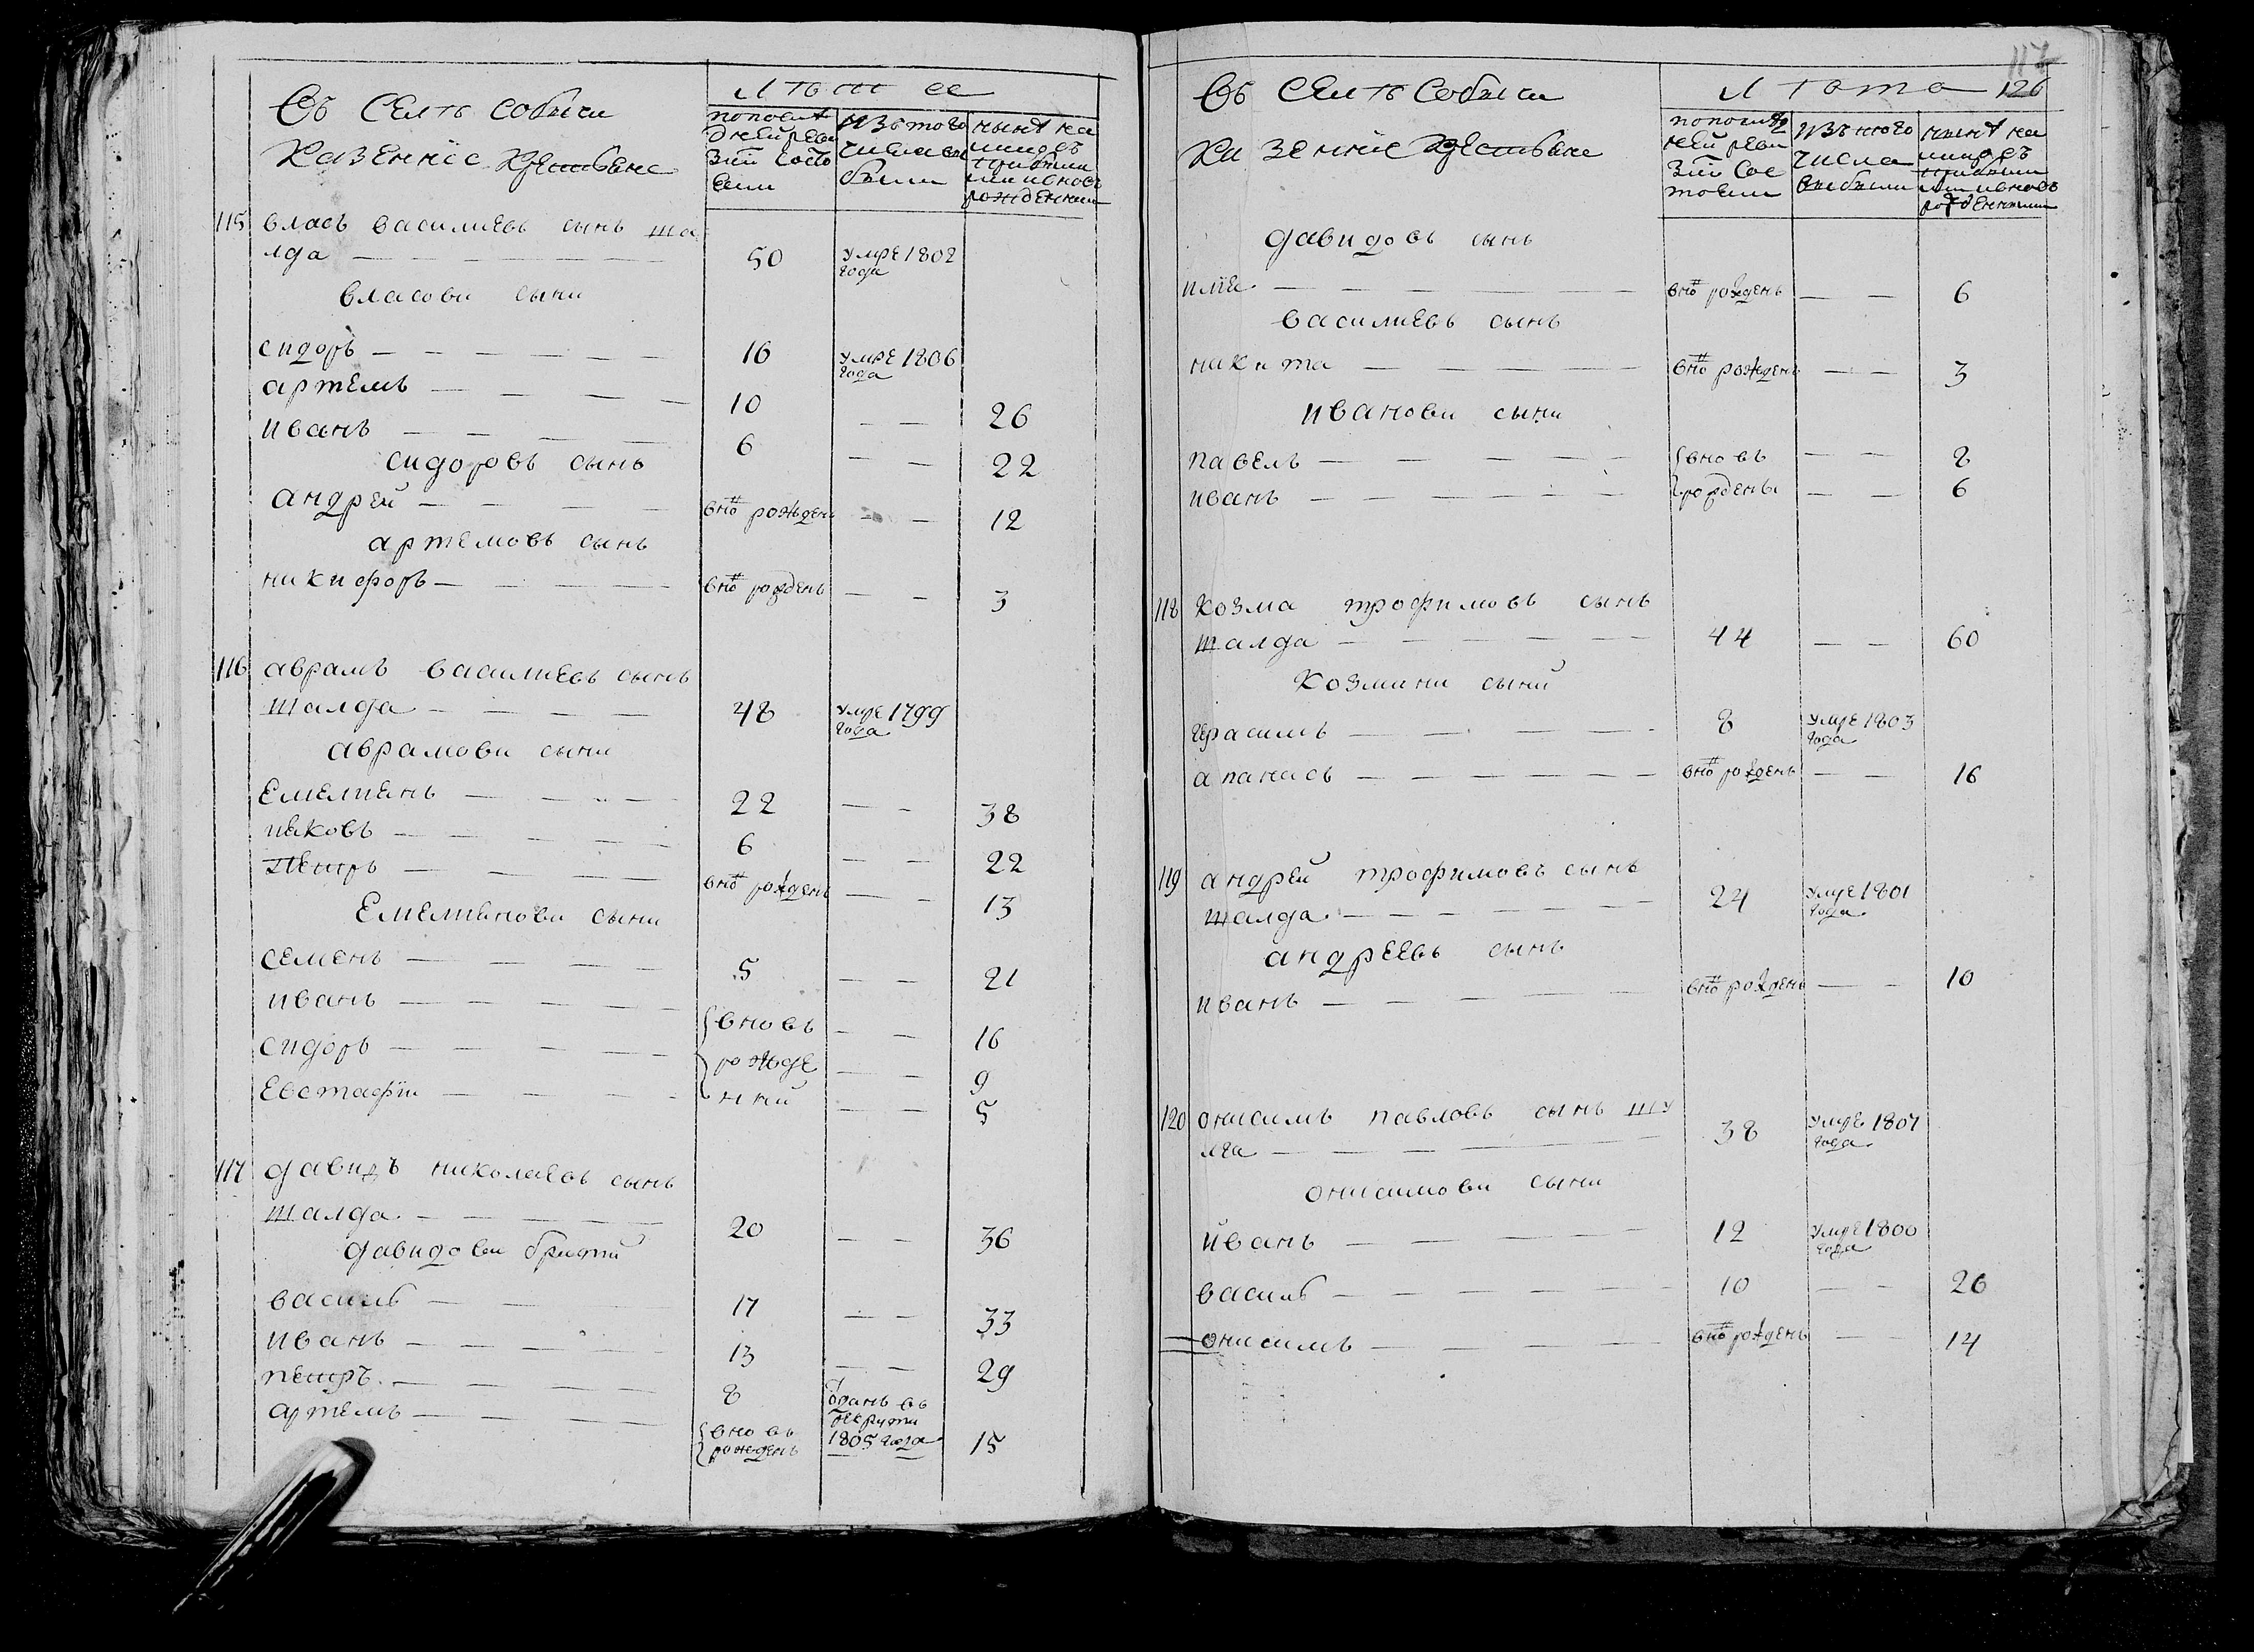 Въ селѣ собичи
казенніе крестьяне
Лѣта
по послѣ
дней реви
зіи состо
яли
изъ того
числа вы
были
нынѣ на
лицо съ
прибыли
ми и вновь
рожденними
115 власъ василиевъ сынъ ша
лда — 50 умре 1802
года
власови сыни
сидоръ — 16 умре 1806
года
артемъ — 10 — — 26
иванъ — 6 — — 22
сидоровъ сынъ
андрей — внѡ рожденъ — — 12
артемовъ сынъ
никифоръ — внѡ рожденъ — — 3
116 аврамъ василиевъ сынъ
шалда — 48 умре 1799
года
аврамови сыни
Емелиянъ — 22 — — 38
иаковъ — 6 — — 22
Петръ — внѡ рожденъ — — 13
Емелиянови сыни
семенъ — 5 — — 21
иванъ — вновь — — 16
сидоръ — рожде — — 9
Евстафіи — нни — — 5
117 давидъ николаевъ сынъ
шалда — 20 — — 36
давидови братия
василь — 17 — — 33
иванъ — 13 — — 29
петръ — 8 отданъ въ
рекрути
1805 года
артемъ — вновь
рожденъ — 15
117
126
Въ селѣ собичи
казенніе крестьяне
Лѣта
по послѣд
ней реви
зіи сос
тояли
изъ того
числа
выбыли
нынѣ на
лицо съ
прибыли
ми и вновь
рожденными
давидовъ сынъ
илия — внѡ рожденъ — — 6
василиевъ сынъ
никита — внѡ рожденъ — — 3
иванови сыни
павелъ — вновь — — 8
иванъ — рождены — — 6
118 козма трофимовъ сынъ
шалда — 44 — — 60
козмини сыни
герасимъ — 8 умре 1803
года
апанасъ — внѡ рожденъ — — 16
119 андрей трофимовъ сынъ
шалда — 24 умре 1801
года
андреевъ сынъ
иванъ — внѡ рожденъ — — 10
120 онисимъ павловъ сынъ шу
лга — 38 умре 1807
года
онисимови сыни
иванъ — 12 умре 1800
года
василь — 10 — — 26
онисимъ — внѡ рожденъ — — 14